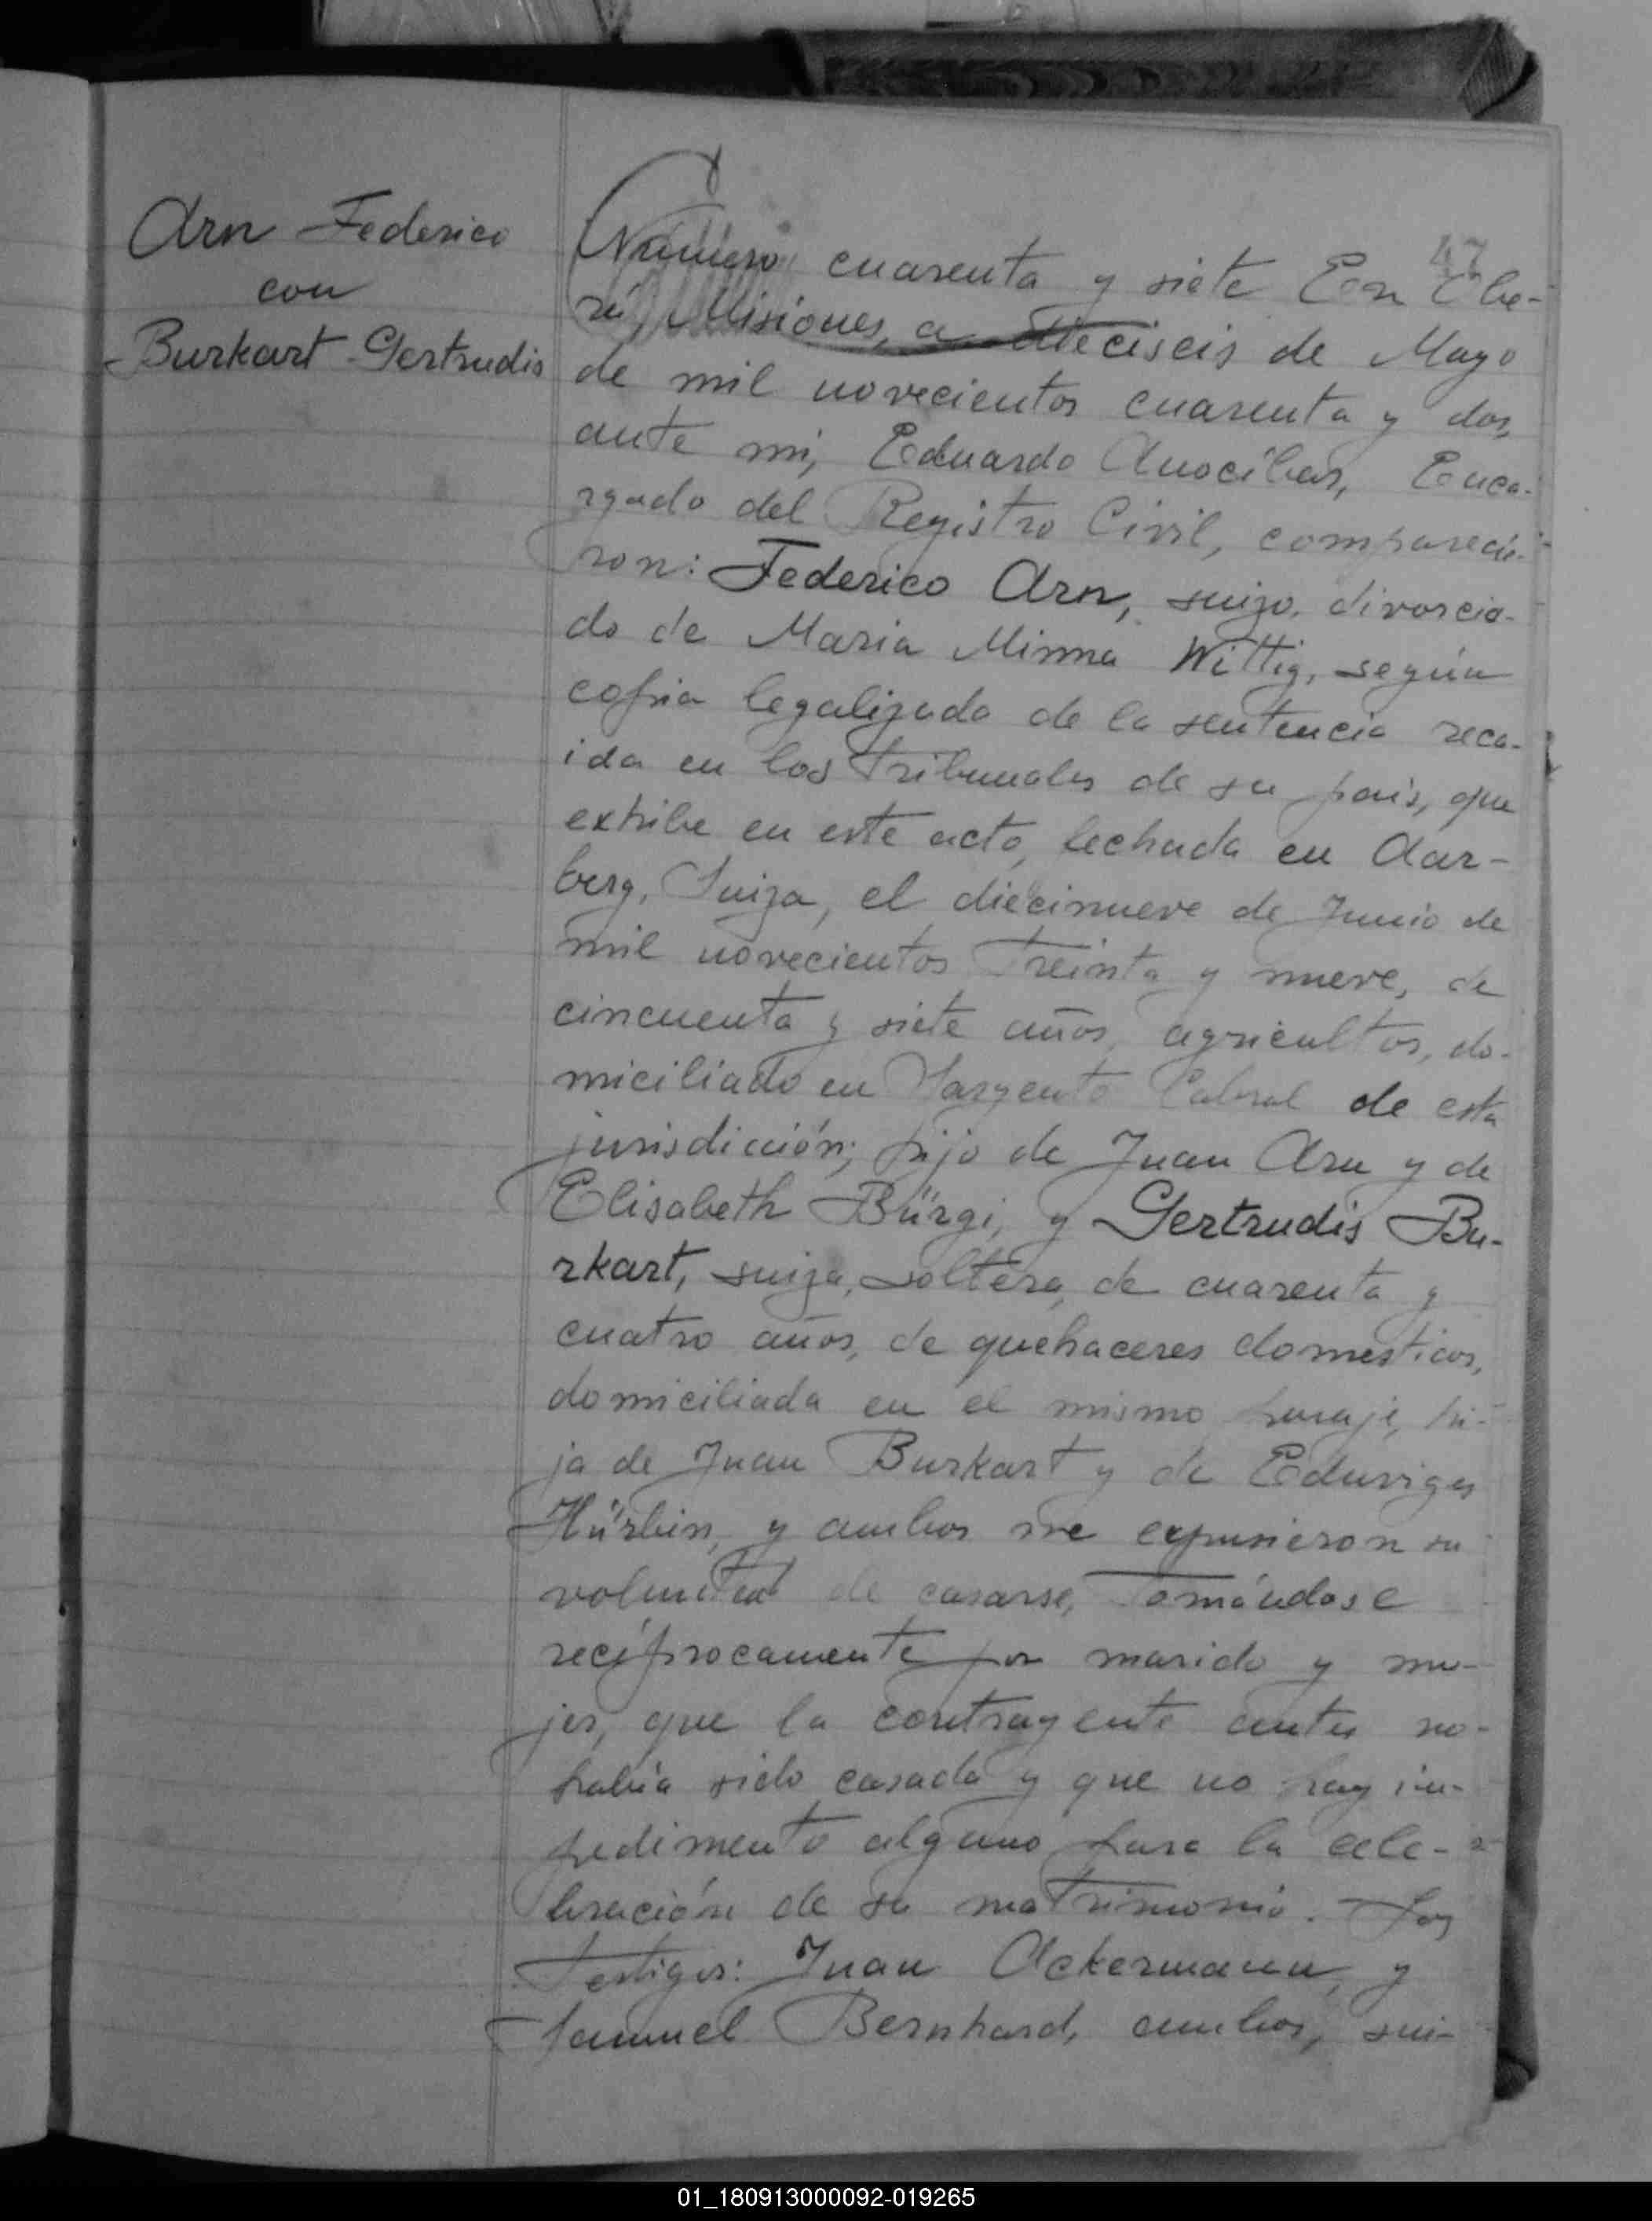 Arn Federico
con
Burkart Gertrudis
47
Número cuarenta y siete En Obe-
rá, Misiones, a dieciseis de Mayo
de mil novecientos cuarenta y dos,
ante mi, Eduardo Anocíbar, Enca-
rgado del Registro Civil, comparecie-
ron: Federico Arn, suizo, divorcia-
do de Maria Minna Wittig, según
copia legalizada de la sentencia reca-
ida en los Tribunales de su pais, que
exhibe en este acto, fechada en Aar-
berg, Suiza, el diecinueve de Junio de
mil novecientos treinta y nueve, de
cincuenta y siete años, agricultor, do-
miciliado en Sargento Cabral de esta
jurisdicción; hijo de Juan Arn y de
Elisabeth Bürgi, y Gertrudis Bu-
rkart, suiza, soltera, de cuarenta y
cuatro años, de quehaceres domesticos,
domiciliada en el mismo paraje, hi-
ja de Juan Burkart y de Eduviges
Hürbin, y ambos me expusieron su
voluntad de casarse, tomándose
recíprocamente por marido y mu-
jer, que la contrayente antes no
había sido casada y que no hay im-
pedimento alguno para la cele-
bración de su matrimonio. Los
Testigos: Juan Ackermann, y
Samuel Bernhard, ambos, sui-
01_180913000092-019265